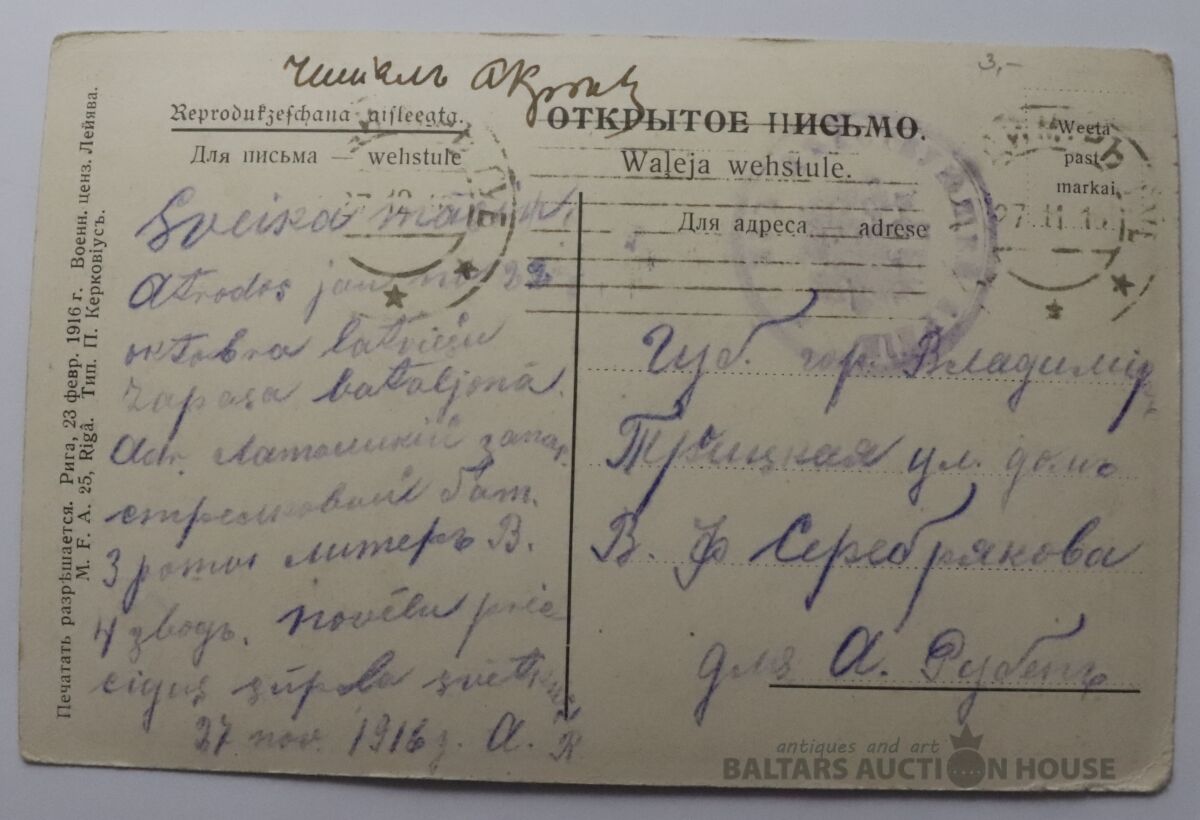 3,-
Читалъ
Reprodukzeschana aisleegta.
ОТКРЫТОЕ ПИСЬМО.
Weeta
past
markai.
Для письма — wehstule
Waļeja wehstule.
Для адреса — adrese
27.11.16
Sveika
Atrodos jau no 22
oktobra latviešu
zapasa bataljonā.
Adr. Латышскій запас.
стрелковый бат.
3 роты литеръ В.
4 зводъ.
27 nov. 1916 g. A. R
Губ. гор. Владимір
Троицкая ул. домъ
В. Ф Серебрякова
для А. Рубенъ
Печатать разрѣшается. Рига, 23 февр. 1916 г. Военн. ценз. Лейява.
M. F. A. 25, Rīgâ. Тип. П. Керковіусъ.
antiques and art
BALTARS AUCTION HOUSE